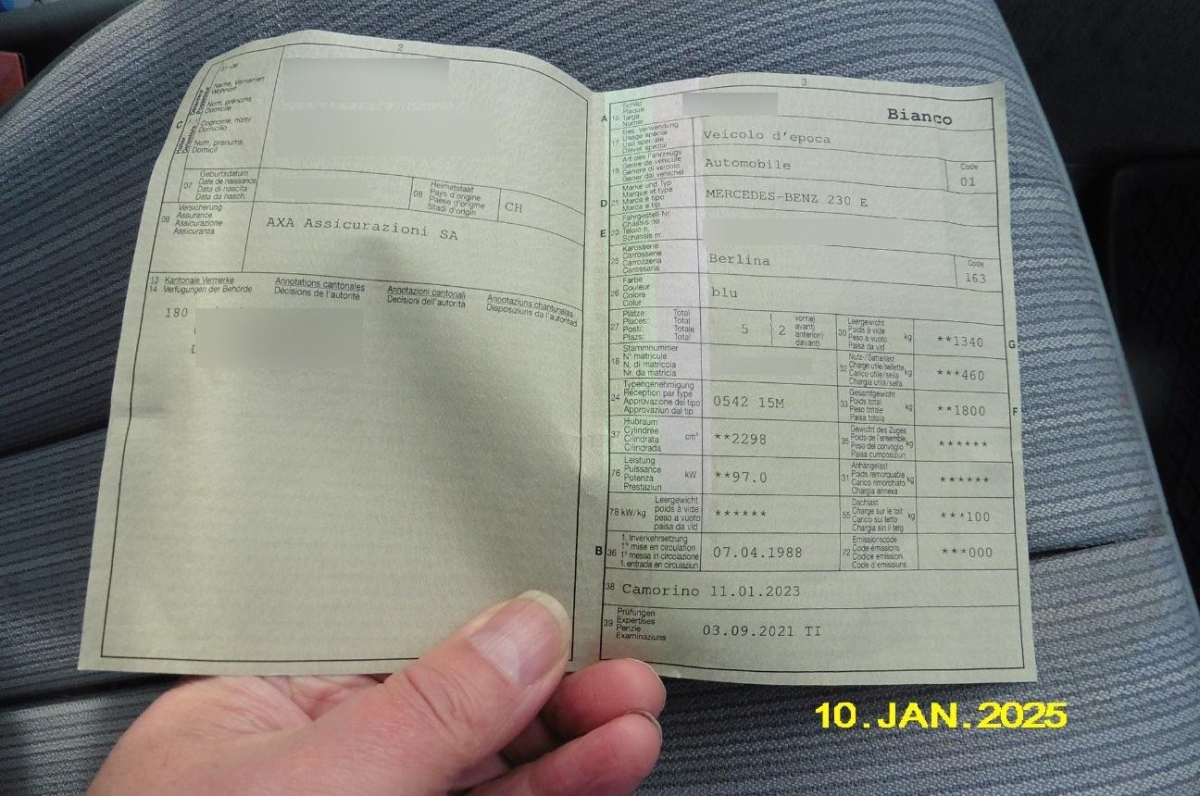 2
01-06
Name, Vornamen
Wohnort
Nom, prénoms
Domicile
Cognome, nomi
Domicilio
Num, prenums
Domicil
C
07
Geburtsdatum
Date de naissance
Data di nascita
Data da nasch.
08
Heimatstaat
Pays d'origine
Paese d'origine
Stadi d'origin
CH
09
Versicherung
Assurance
Assicurazione
Assicuranza
AXA Assicurazioni SA
13
14
Kantonale Vermerke
Verfügungen der Behörde
Annotations cantonales
Décisions de l'autorité
Annotazioni cantonali
Decisioni dell'autorità
Annotaziuns chantunalas
Disposiziuns da l'autoritad
180
3
A
Schild
Plaque
Targa
Numer
Bianco
17
Bes. Verwendung
Usage spécial
Uso speciale
Diever spezial
Veicolo d'epoca
19
Art des Fahrzeugs
Genre de véhicule
Genere di veicolo
Gener dal vehichel
Automobile
Code
01
D
21
Marke und Typ
Marque et type
Marca e tipo
Marca e tip
MERCEDES-BENZ 230 E
E
23
Fahrgestell-Nr.
Châssis no
Telaio n.
Schassis nr.
25
Karosserie
Carrosserie
Carrozzeria
Carossaria
Berlina
Code
163
26
Farbe
Couleur
Colore
Colur
blu
27
Plätze: Total
Places: Total
Posti: Totale
Plazs: Total
5
2
vorne)
avant)
anteriori)
davant)
30
Leergewicht
Poids à vide
Peso a vuoto
Paisa da vid
kg
**1340
G
18
Stammnummer
N° matricule
N. di matricola
Nr. da matricla
32
Nutz-/Sattellast
Charge utile/sellette
Carico utile/sella
Chargia utila/sella
kg
***460
24
Typengenehmigung
Réception par type
Approvazione del tipo
Approvaziun dal tip
0542 15M
33
Gesamtgewicht
Poids total
Peso totale
Paisa totala
kg
**1800
F
37
Hubraum
Cylindrée
Cilindrata
Cilindrada
cm³
**2298
35
Gewicht des Zuges
Poids de l'ensemble
Peso del convoglio
Paisa cumposiziun
kg
******
76
Leistung
Puissance
Potenza
Prestaziun
kW
**97.0
31
Anhängelast
Poids remorquable
Carico rimorchiato
Chargia annexa
kg
******
78 kW/kg
Leergewicht
poids à vide
peso a vuoto
paisa da vid
******
55
Dachlast
Charge sur le toit
Carico sul tetto
Chargia sin il tetg
kg
***100
B
36
1. Inverkehrsetzung
1re mise en circulation
1a messa in circolazione
1. entrada en circulaziun
07.04.1988
72
Emissionscode
Code émissions
Codice emissioni
Code d'emissiuns
***000
38 Camorino 11.01.2023
39
Prüfungen
Expertises
Perizie
Examinaziuns
03.09.2021 TI
10. JAN. 2025